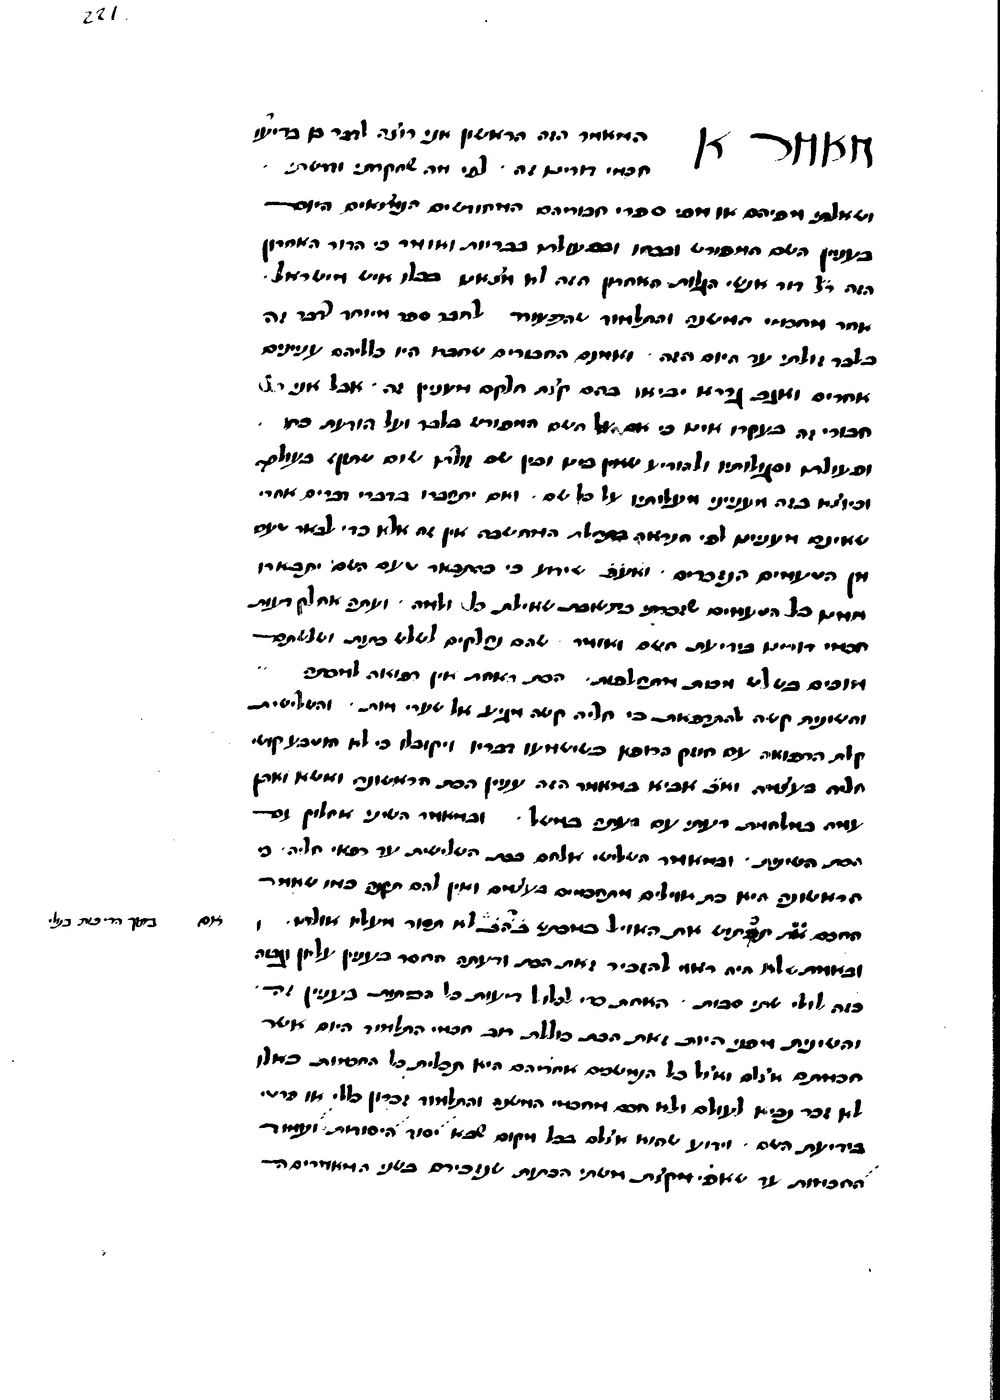 221.
מאמר א
המאמר הזה הראשון אני רוצה לדבר בן בדיעו'
חכמי דורינו זה · לפי מה שחקרתי ודרשתי ·
ושאלתי מפיהם או מפי ספרי חבוריהם המחודשים הנמצאים היום
בעניין השם המפורש ובכחו ובפעולתו בבריות ואומר כי הדור האחרון
הזה ר"ל דור אנשי הגלות האחרון הזה לא מצאנו בכלו איש מישראל ·
אחר מחכמי המשנה והתלמוד שהתעורר לחבר ספר מיוחד לדבר זה
בלבד זולתי עד היום הזה · ואמנם החבורים שחברו היו כלליהם עניינים
אחרים ואגב גררא יביאו בהם קצת חלקם מעניין זה · אבל אני
חבורי זה בעקרו אינו כי אם על השם המפורש בלבד ועל הודעת כחו ·
ופעולתו וסגולותיו ולהודיע שאין בינו ובין שם זולתו שום שתוף בעולם
וכיוצא בזה מענייני מעלותיו על כל שם · ואם יתחברו בדברי דברים אחרי'
שאינם מעניינו לפי הנראה בתחלת המחשבה אין זה אלא כדי לבאר טעם
מן הטעמים הנזכרים · ואע"פ שידוע כי כהתבאר טעם השם יתבארו
ממנו כל הטעמים שזכרתי בתשובת שאילת כל ולמה · ועתה אחלק דעות
חכמי דורינו בידיעת השם ואומר שהם נחלקים לשלש כתות ושלשתם
מוכים בשלש מכות מתחלפות · הכת האחת אין רפואה למכתה
והשנית קשה להתרפאת כי חליה קשה מגיע אל שערי מות · והשלישית
קלת הרפואה עם חוזק הרופא כשישמעו דבריו ויקובלו כי לא הוטבע קושי
חליה בעצמה ואיך אביא במאמר הזה עניין הכת הראשונה ואשא ואתן
עמה במלחמת דעתי עם דעתה במשל · ובמאמר השיני אחלוק עם
הכת השינית · ובמאמר השלישי אלחם בכת השלישית עד רפאי חליה · כי
הראשונה היא כת אוילים מתחכמים בעצמם ואין להם תקנה כמו שאמר
החכם אם תכתוש את האויל במכתש לא תסור מעליו אולתו · ו
אום בתוך הריפות בעלי
ובאמת שלא היה ראוי להזכיר זאת הכת ודעתה החסר בעניין עליון ונכבה
כזה לולי שתי סבות · האחת כדי לכלול דיעות כל הכתות בעניין זה ·
והשינית מפני היות זאת הכת כוללת רוב חכמי התלמוד היום אשר
חכמתם אצלם ואצל כל הנמשכים אחריהם היא תכלית כל החכמות כאלו
לא דבר נביא לעולם ולא חכם מחכמי המשנה והתלמוד זכרון כללי או פרטי
בידיעת השם · וידוע שהוא אצלם בכל מקום שבא יסוד היסודות ועמוד
החכמות עד שאפי' מקצת משתי הכתות שנזכירם בשני המאמרים ה